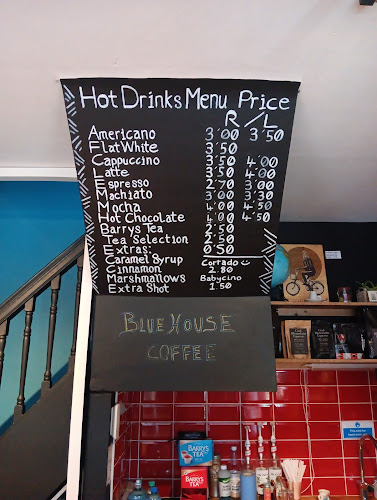 Hot Drinks Menu Price
R / L
Americano 3'00 3'50
Flat White 3'50
Cappuccino 3'50 4'00
Latte 3'50 4'00
Espresso 2'70 3'00
Machiato 3'00 3'30
Mocha 4'00 4'50
Hot Chocolate 4'00 4'50
Barrys Tea 2'50
Tea Selection 2'50
Extras: 0'50
Caramel Syrup
Cinnamon
Marshmallows
Extra Shot
Cortado
2.80
Babycino
1.50
BLUE HOUSE
COFFEE
BARRY'S
TEA
BARRY'S
TEA